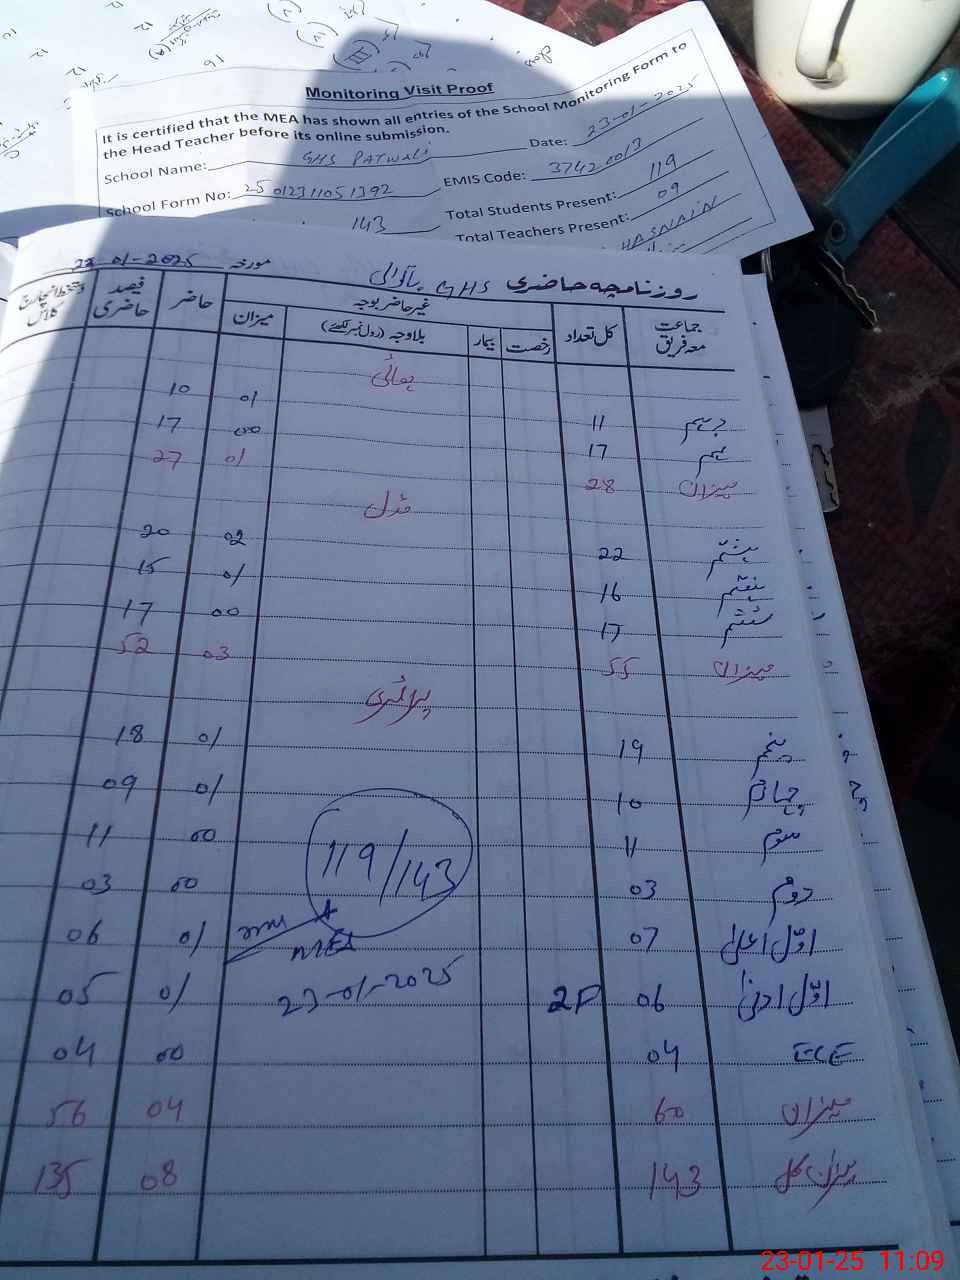 Monitoring Visit Proof
It is certified that the MEA has shown all entries of the School Monitoring Form to
the Head Teacher before its online submission.
School Name: GHS PATWALI Date: 23-01-2025
School Form No: 25012311051392 EMIS Code: 37420013
143 Total Students Present: 119
Total Teachers Present: 09
HASNAIN
روزنامچہ حاضری GHS مورخہ 22-01-2025
جماعت معہ فریق کل تعداد غیر حاضر بوجہ حاضر فیصد حاضری دستخط انچارج کلاس
رخصت بیمار بلاوجہ (رول نمبر لکھیے) میزان
ہائی
دہم 11 01 10
نہم 17 00 17
میزان 28 01 27
مڈل
ہشتم 22 02 20
ہفتم 16 01 15
ششم 17 00 17
میزان 55 03 52
پرائمری
پنجم 19 01 18
چہارم 10 01 09
سوم 11 00 11
119/143
دوم 03 00 03
اوّل اعلیٰ 07 01 06
MEA
اوّل ادنیٰ 06 2P 01 05
23-01-2025
ECE 04 00 04
میزان 60 04 56
میزان کل 143 08 135
23-01-25 11:09